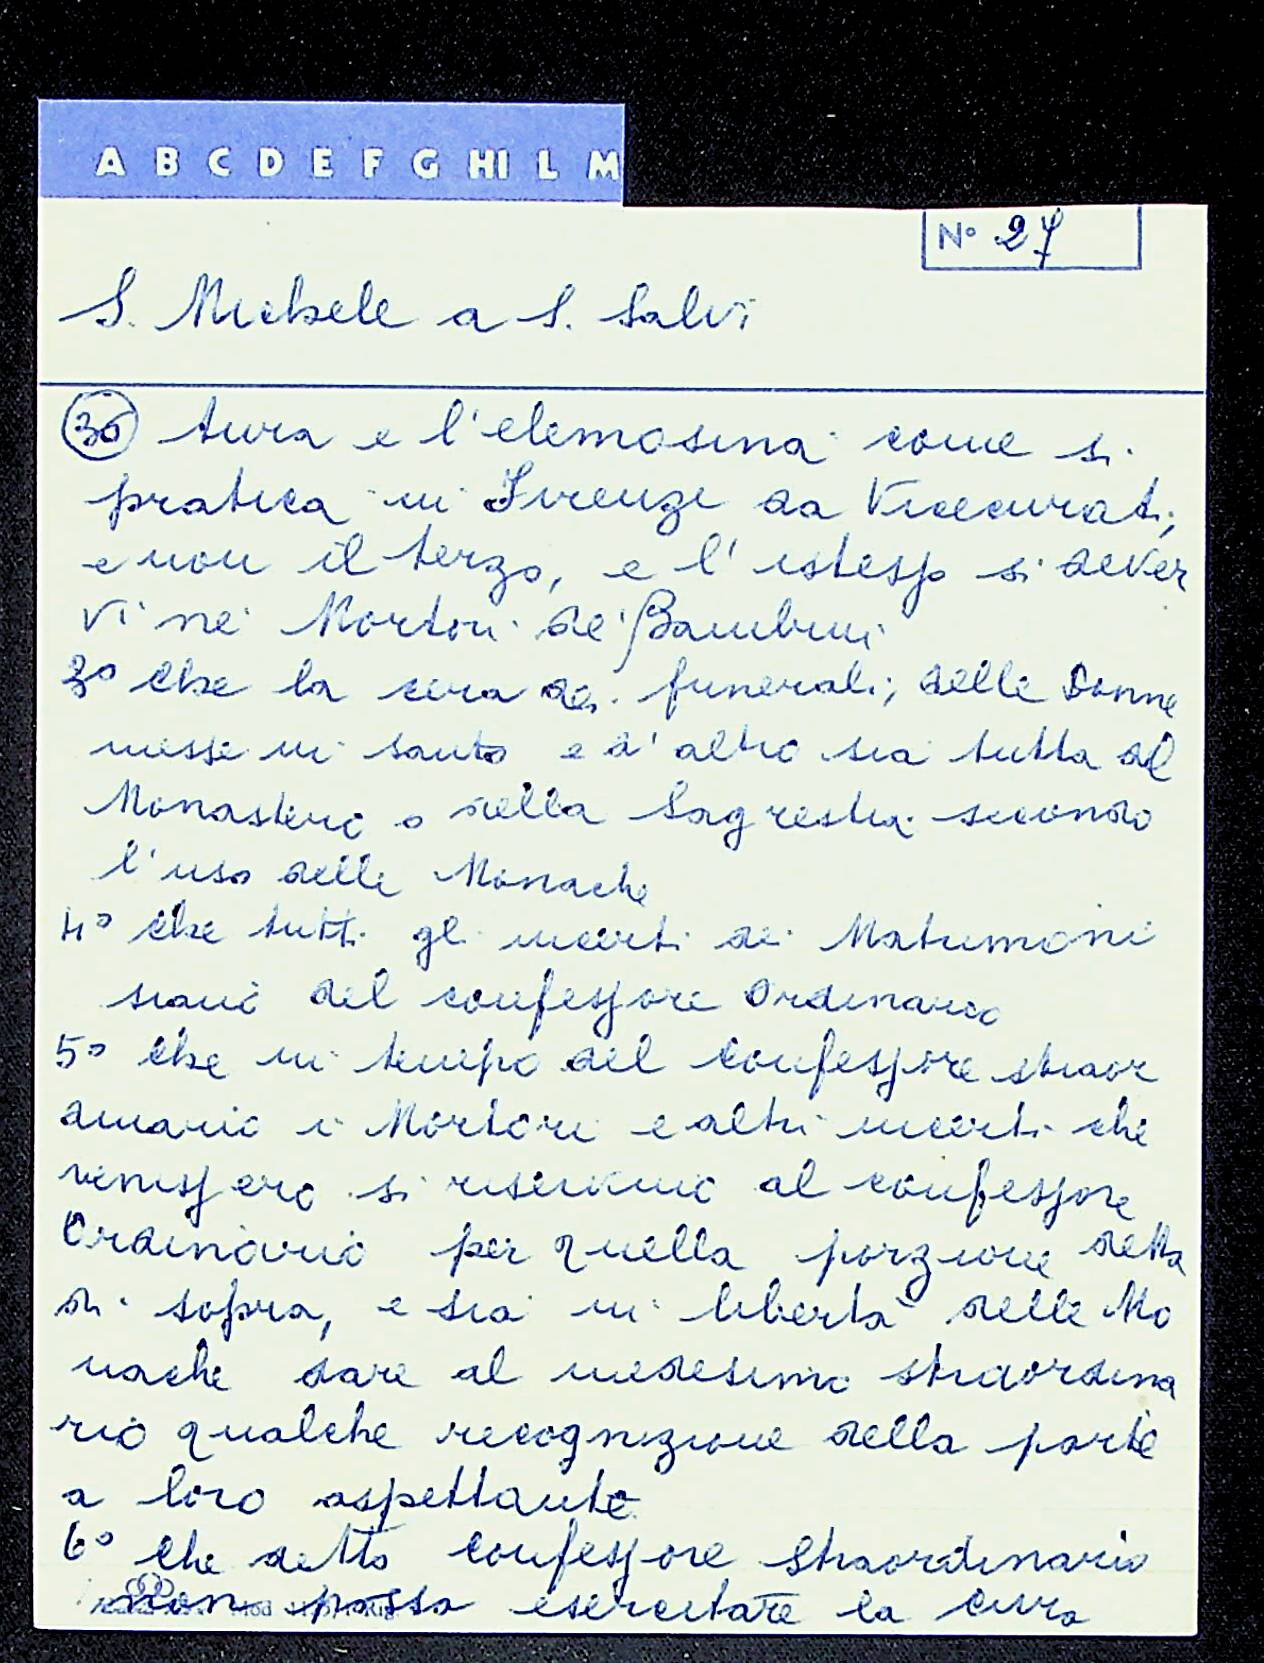 A B C D E F G HI L M
N° 27
S. Michele a S. Salvi
36 tura e l'elemosina come si
pratica in Firenze da Vicecurati,
e non il terzo, e l'istesso si osser
vi ne' Mortori de' Bambini
3° che la cera dei funerali, delle Donne
messe in santo e d'altro sia tutta del
Monastero o della Sagrestia secondo
l'uso delle Monache
4° che tutti gli incerti dei Matrimoni
siano del confessore Ordinario
5° che in tempo del confessore straor
dinario i Mortori e altri incerti che
venissero si riservino al confessore
Ordinario per quella porzione detta
di sopra, e sia in libertà delle Mo
nache dare al medesimo straordina
rio qualche recognizione della parte
a loro aspettante
6° che detto confessore Straordinario
non possa esercitare la cura